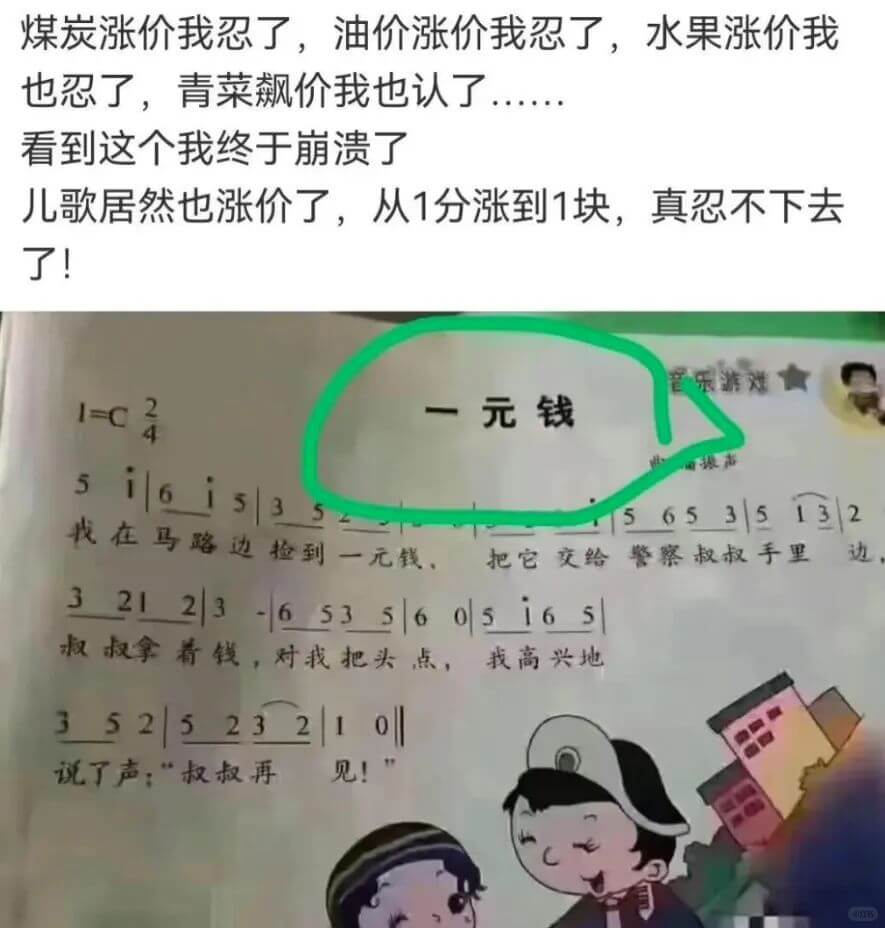 煤炭涨价我忍了，油价涨价我忍了，水果涨价我
也忍了，青菜飙价我也认了……
看到这个我终于崩溃了
儿歌居然也涨价了，从1分涨到1块，真忍不下去
了！
音乐游戏
一元钱
1=C 2/4
5 i|6 i 5|3 5
i|5 6 5 3|5 1 3|2
我在马路边捡到一元钱， 把它交给警察叔叔手里 边，
3 2 1 2|3 -|6 5 3 5|6 0|5 i 6 5|
叔叔拿着钱，对我把头点， 我高兴地
3 5 2|5 2 3 2|1 0‖
说了声：“叔叔再 见！”